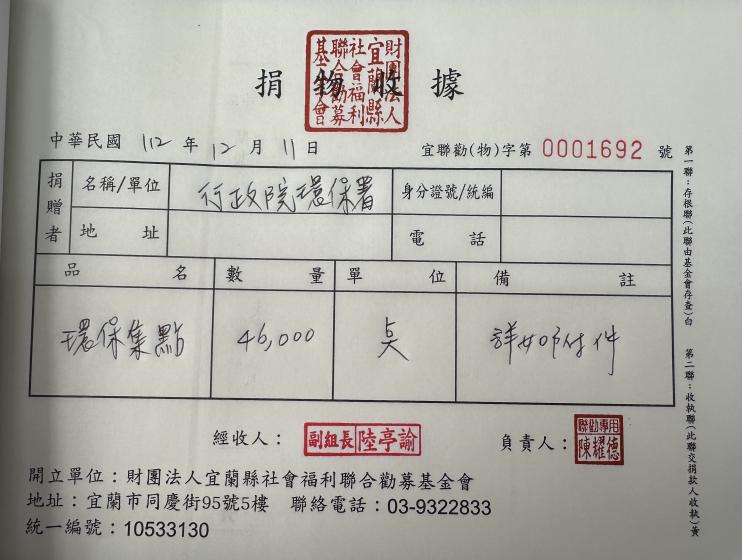 捐物收據
財團法人
宜蘭縣
社會福利
聯合勸募
基金會
中華民國 112 年 12 月 11 日
宜聯勸(物)字第 0001692 號
捐贈者 名稱/單位 行政院環保署 身分證號/統編
地址 電話
品名 數量 單位 備註
環保集點 46,000 點 詳如附件
經收人：副組長 陸亭諭
負責人：聯勸專用 陳耀德
開立單位：財團法人宜蘭縣社會福利聯合勸募基金會
地址：宜蘭市同慶街95號5樓 聯絡電話：03-9322833
統一編號：10533130
第一聯：存根聯(此聯由基金會存查)白
第二聯：收執聯(此聯交捐款人收執)黃